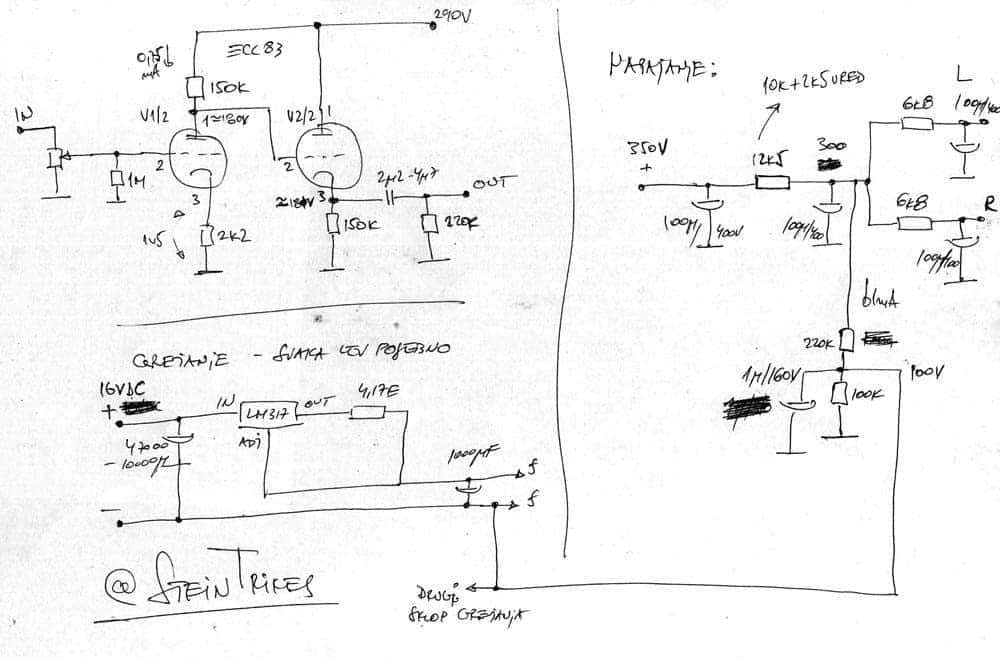 290V
0,75
mA
ECC 83
150K
IN
V1/2
1≈180V
V2/2
1
2
2
1M
3
3
1V5
2K2
≈181V
150K
2µ2-4µ7
OUT
220K
GREJANJE - SVAKA CEV POSEBNO
16VDC
+
IN
LM317
OUT
4,17E
ADJ
4700
-10000µ
1000µF
f
f
-
@ STEINTRIKES
DRUGI
SKLOP GREJANJA
NAPAJANJE:
10K+2K5 URED
350V
+
12K5
300
100M/400V
100M/400
6K8
L
100M/400
6K8
R
100M/400
220K
1M/160V
100K
100V